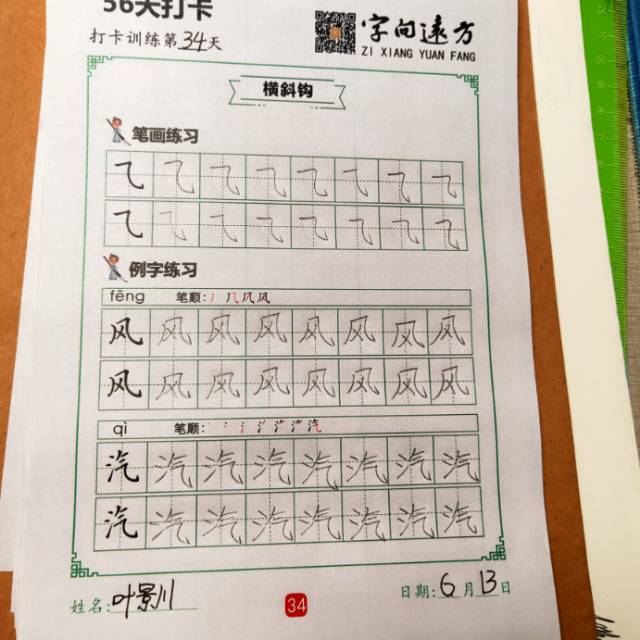 56天打卡
打卡训练第34天
字向远方
ZI XIANG YUAN FANG
横斜钩
笔画练习
⺄ ⺄ ⺄ ⺄ ⺄ ⺄ ⺄ ⺄
⺄ ⺄ ⺄ ⺄ ⺄ ⺄ ⺄ ⺄
例字练习
fēng 笔顺:
风 风 风 风 风 风 风 风
风 风 风 风 风 风 风 风
qì 笔顺:
汽 汽 汽 汽 汽 汽 汽 汽
汽 汽 汽 汽 汽 汽 汽 汽
姓名:叶景川
34
日期:6月13日